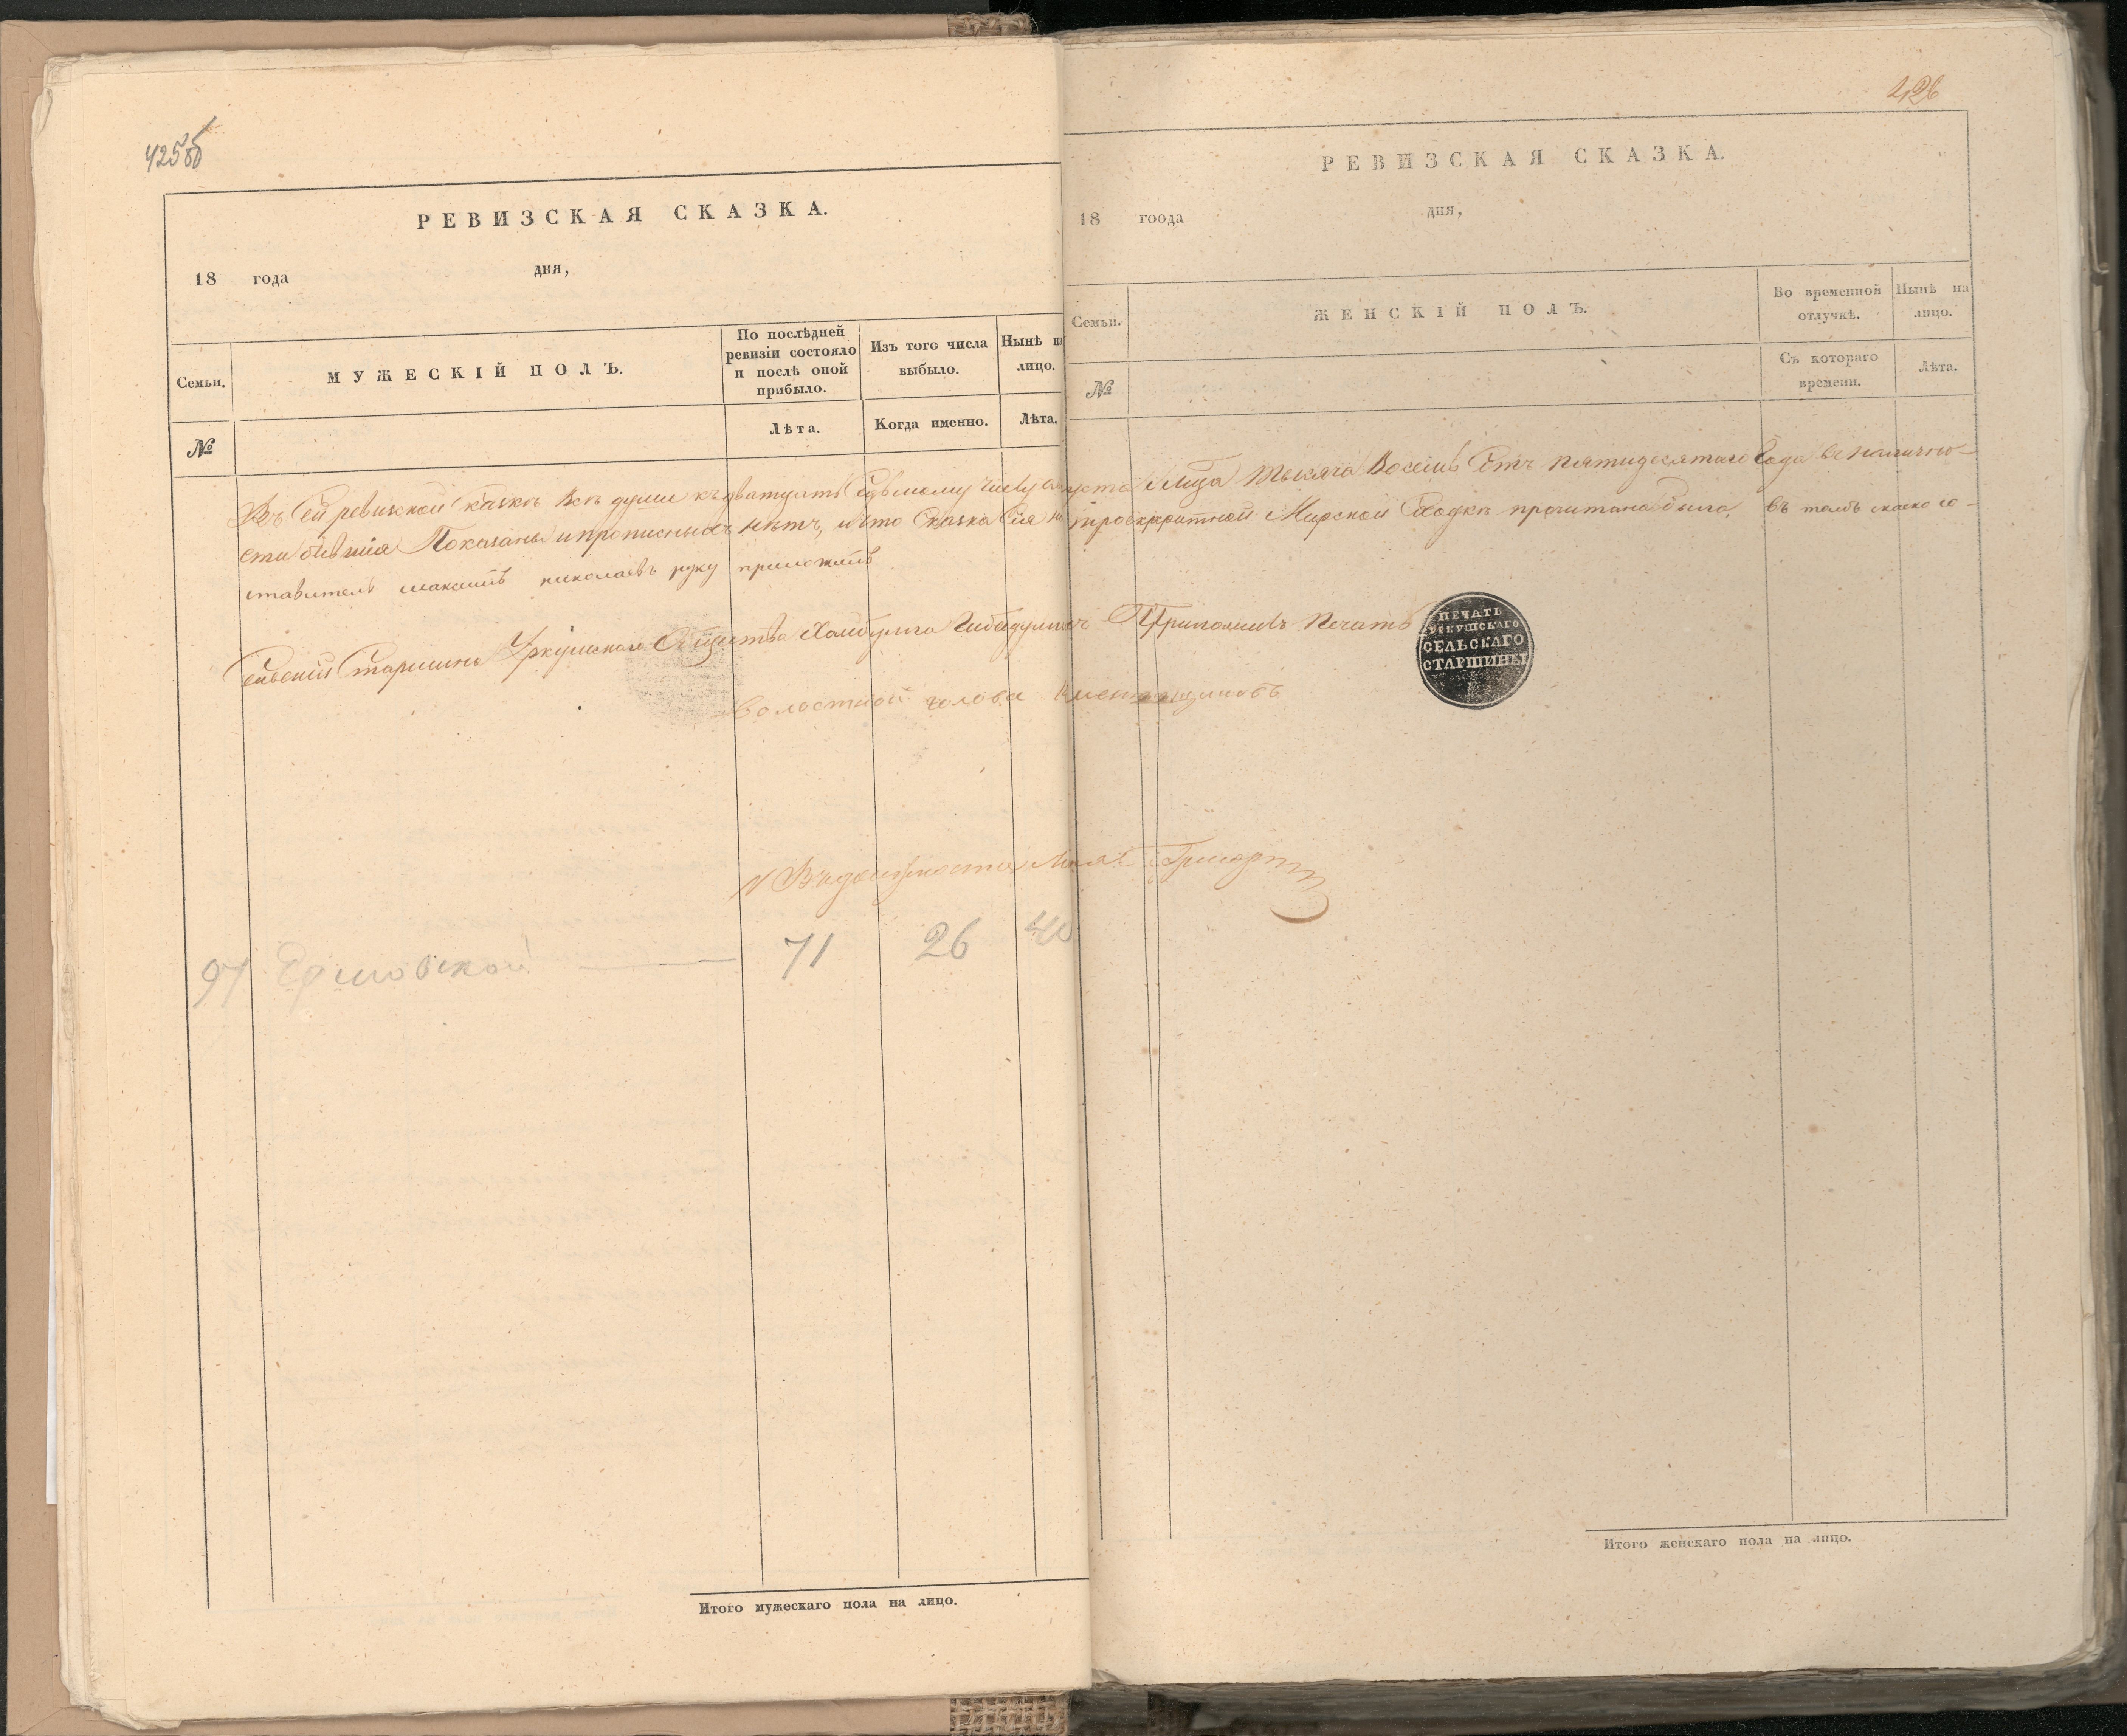 425об
РЕВИЗСКАЯ СКАЗКА.
18 года дня,
Семьи.
МУЖЕСКІЙ ПОЛЪ.
По послѣдней ревизіи состояло и послѣ оной прибыло.
Изъ того числа выбыло.
Нынѣ на лицо.
№
Лѣта.
Когда именно.
Лѣта.
426
РЕВИЗСКАЯ СКАЗКА.
18 гоода дня,
Семьи.
ЖЕНСКІЙ ПОЛЪ.
Во временной отлучкѣ.
Нынѣ на лицо.
№
Съ котораго времени.
Лѣта.
Въ сей ревизской сказкѣ всѣ души къ двадцать седьмому числу Августа Мѣсяца тысяча восемь сотъ пятидесятаго года въ налично-
сти бывшія показаны и прописныхъ нѣтъ, и что сказка сія на троекратной Мирской сходкѣ прочитана была. въ томъ сказко со-
ставитель максимъ николаевъ руку приложилъ
Сельскій Старшина Уркушскаго Общества Приложилъ Печать
ПЕЧАТЬ
УРКУШСКАГО
СЕЛЬСКАГО
СТАРШИНЫ
Волостной голова
97 71 26 40
Итого мужескаго пола на лицо.
Итого женскаго пола на лицо.